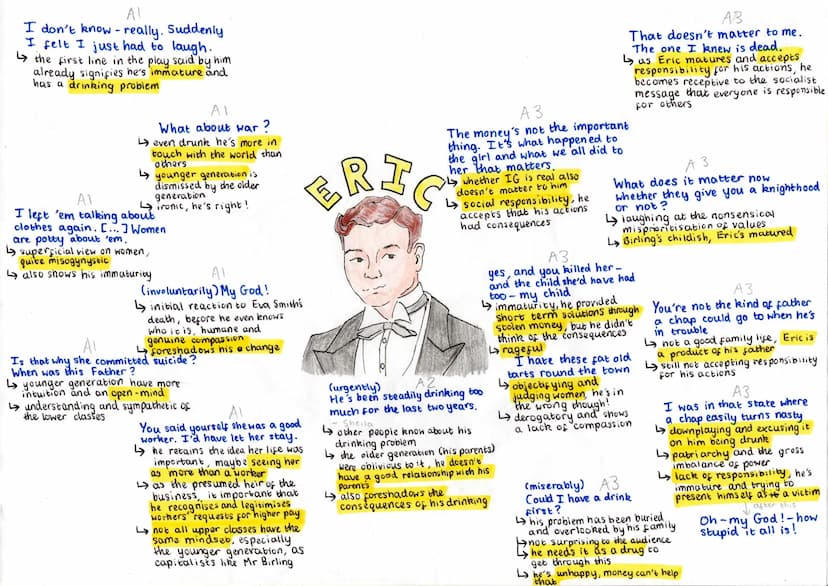 A1
I don't know - really. Suddenly
I felt I just had to laugh.
↳ the first line in the play said by him
already signifies he's immature and
has a drinking problem
A1
What about war?
↳ even drunk he's more in
touch with the world than
others
↳ younger generation is
dismissed by the older
generation
↳ ironic, he's right!
A1
I left 'em talking about
clothes again. [...] Women
are potty about 'em.
↳ superficial view on women,
quite misogynystic
↳ also shows his immaturity
A1
(involuntarily) My God!
↳ initial reaction to Eva Smith's
death, before he even knows
who it is, humane and
genuine compassion
↳ foreshadows his change
A1
Is that why she committed suicide?
When was this Father?
↳ younger generation have more
intuition and an open-mind
↳ understanding and sympathetic of
the lower classes
A1
You said yourself she was a good
worker. I'd have let her stay.
↳ he retains the idea her life was
important, maybe seeing her
as more than a worker
↳ as the presumed heir of the
business, it important that
he recognises and legitimises
workers' requests for higher pay
↳ not all upper classes have the
same mindset, especially
the younger generation, as
capitalists like Mr Birling
ERIC
A2
(urgently)
He's been steadily drinking too
much for the last two years.
- Sheila
↳ other people know about his
drinking problem
↳ the older generation (his parents)
were oblivious to it, he doesn't
have a good relationship with his
parents
↳ also foreshadows the
consequences of his drinking
A3
The money's not the important
thing. It's what happened to
the girl and what we all did to
her that matters.
↳ whether IG is real also
doesn't matter to him
↳ social responsibility, he
accepts that his actions
had consequences
A3
yes, and you killed her -
and the child she'd have had
too - my child
↳ immaturity, he provided
short term solutions through
stolen money, but he didn't
think of the consequences
↳ rageful
A3
I hate these fat old
tarts round the town
↳ objectifying and
judging women, he's in
the wrong though!
↳ derogatory and shows
a lack of compassion
(miserably) A3
Could I have a drink
first?
↳ his problem has been buried
and overlooked by his family
↳ not surprising to the audience
↳ he needs it as a drug to
get through this
↳ he's unhappy, money can't help
that
A3
That doesn't matter to me.
The one I knew is dead.
↳ as Eric matures and accepts
responsibility for his actions, he
becomes receptive to the socialist
message that everyone is responsible
for others
A3
What does it matter now
whether they give you a knighthood
or not?
↳ laughing at the nonsensical
misprioritisation of values
↳ Birling's childish, Eric's matured
A3
You're not the kind of father
a chap could go to when he's
in trouble
↳ not a good family life, Eric is
a product of his father
↳ still not accepting responsibility
for his actions
A3
I was in that state where
a chap easily turns nasty
↳ downplaying and excusing it
on him being drunk
↳ patriarchy and the gross
imbalance of power
↳ lack of responsibility, he's
immature and trying to
present himself as a victim
↓ after this
Oh - my God! - how
stupid it all is!